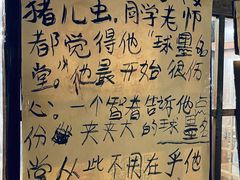 猪儿虫,同学老师
都觉得他“球墨的
堂”他最开始很伤
心。一个智者告诉他点
份 夹夹大的球墨
堂从此不用在乎他